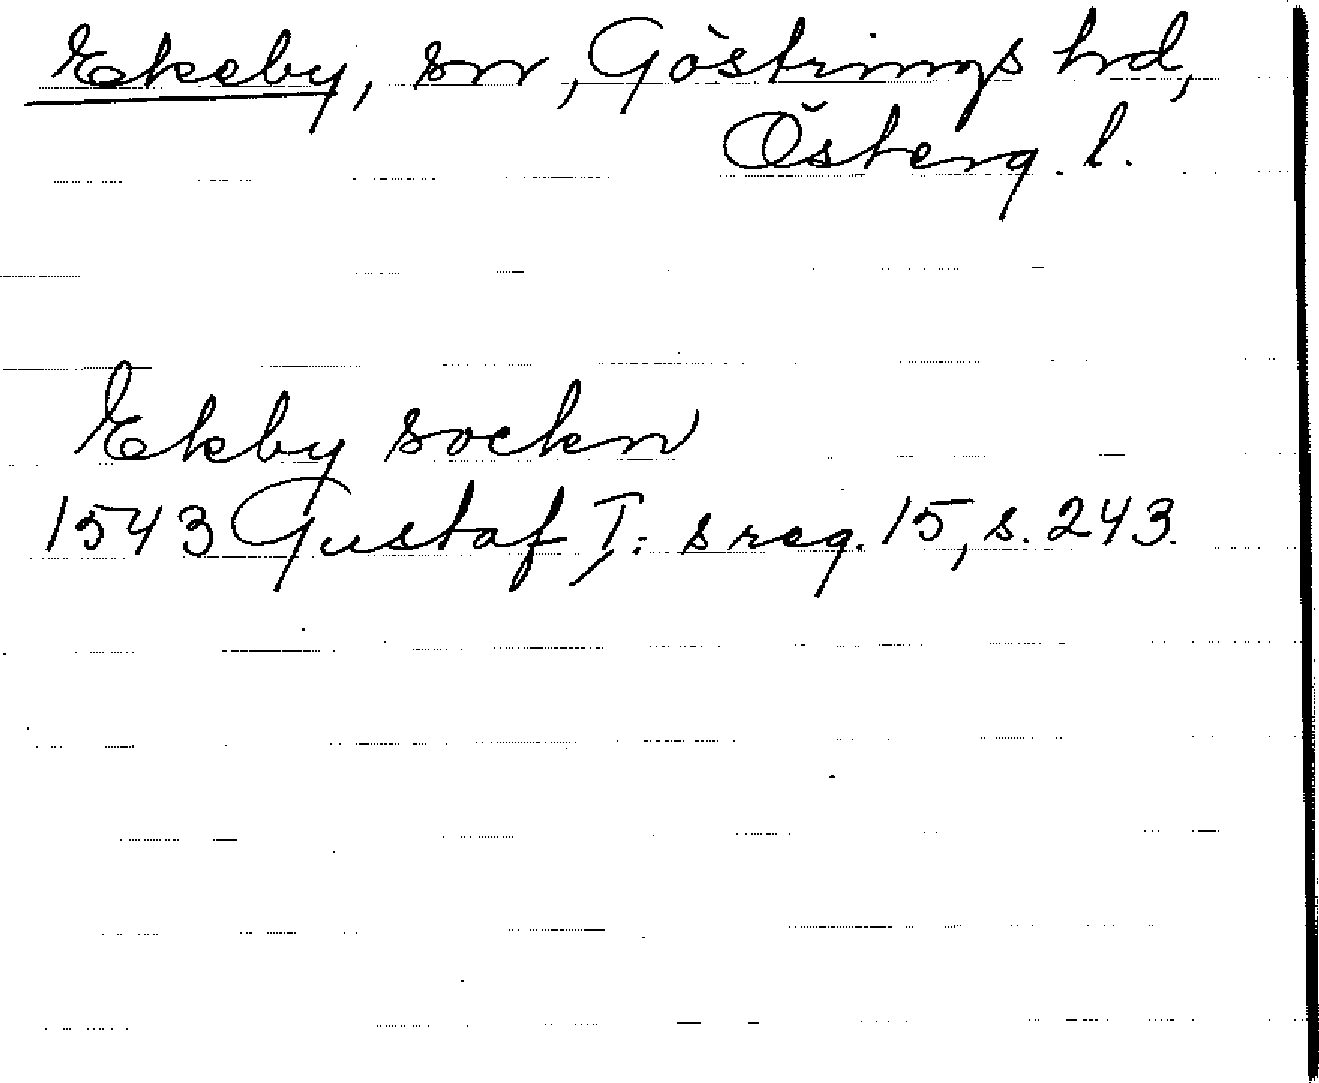 Ekeby, sn, Göstrings hd,
Österg. l.
Ekby sockn
1543 Gustaf I: s reg. 15, s. 243.